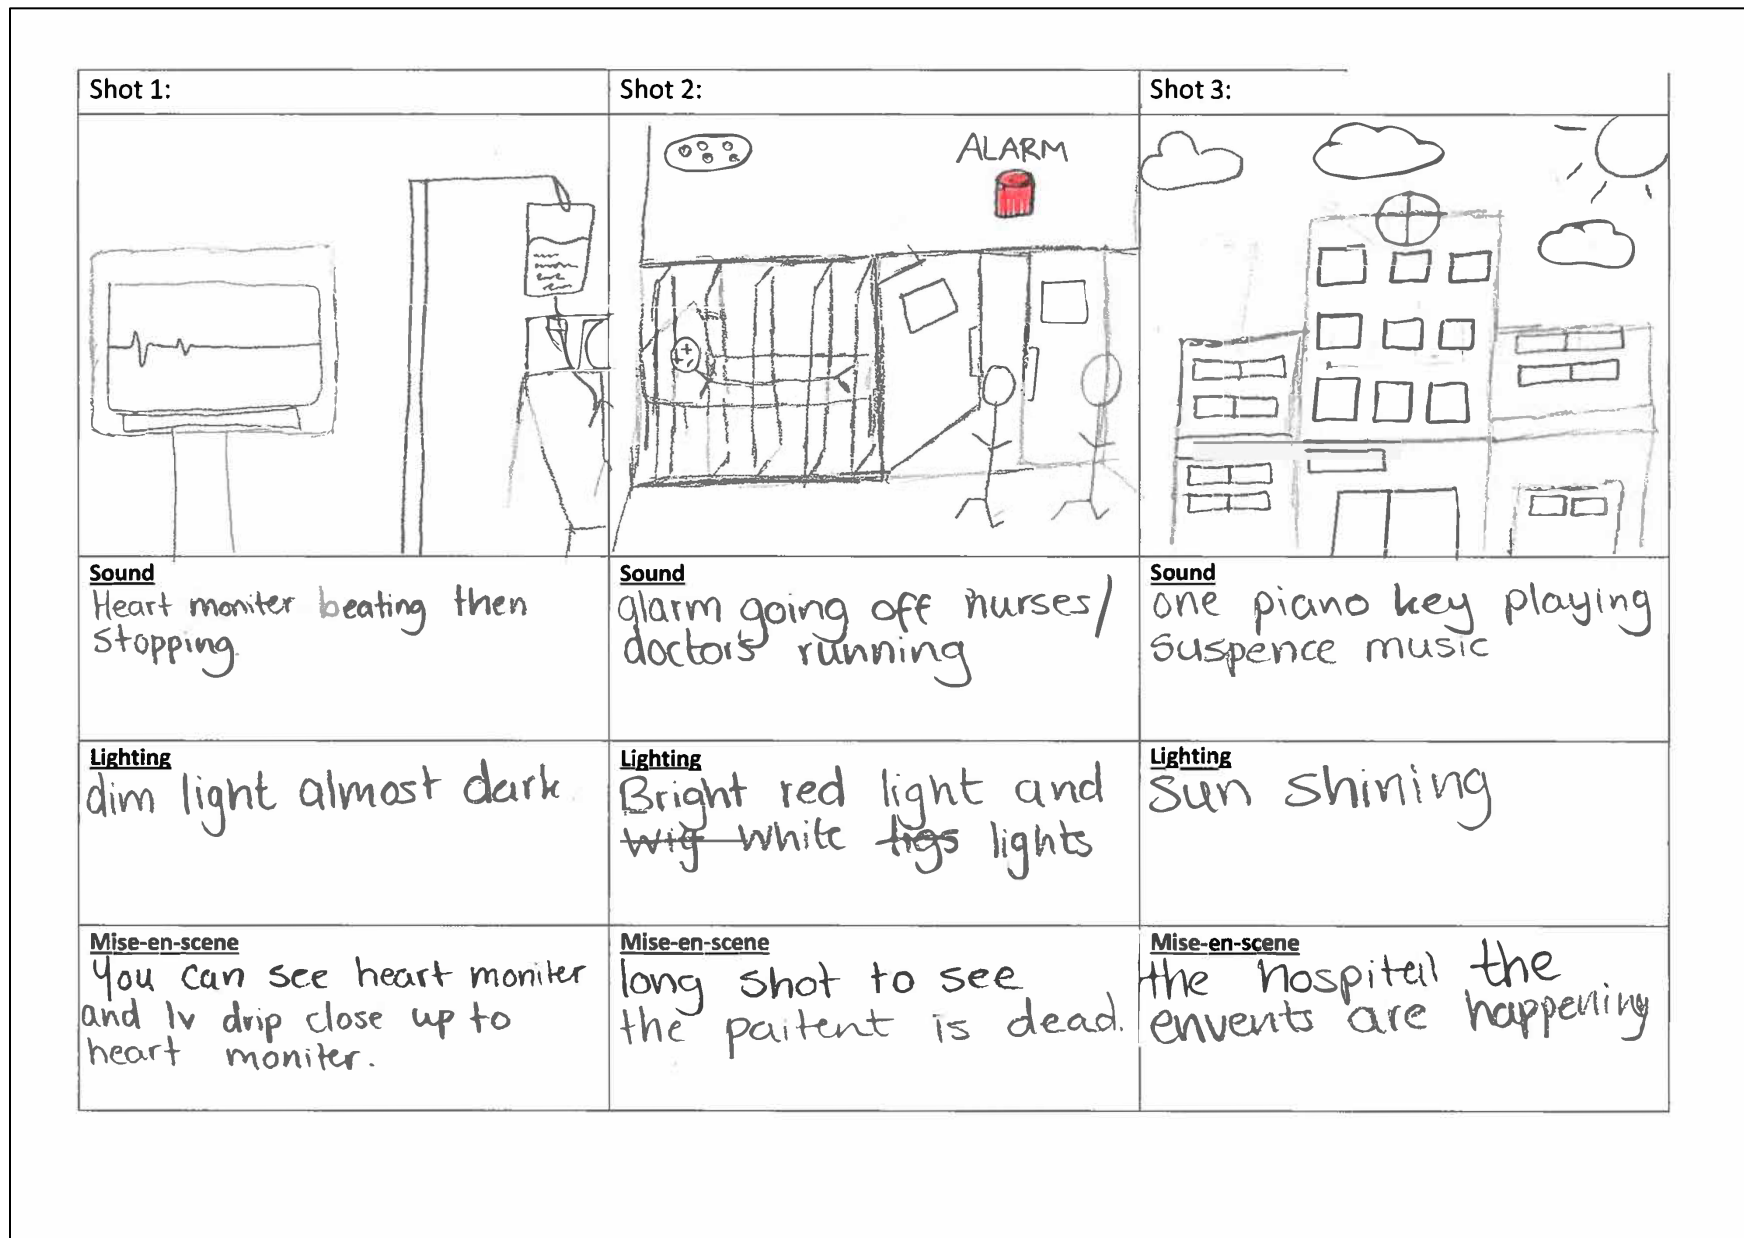 Shot 1:
Shot 2:
Shot 3:
ALARM
Sound
Heart moniter beating then
stopping.
Sound
alarm going off nurses/
doctors running
Sound
one piano key playing
suspence music
Lighting
dim light almost dark
Lighting
Bright red light and
wig white ligs lights
Lighting
sun shining
Mise-en-scene
You can see heart moniter
and Iv drip close up to
heart moniter.
Mise-en-scene
long shot to see
the paitent is dead.
Mise-en-scene
the hospital the
envents are happening